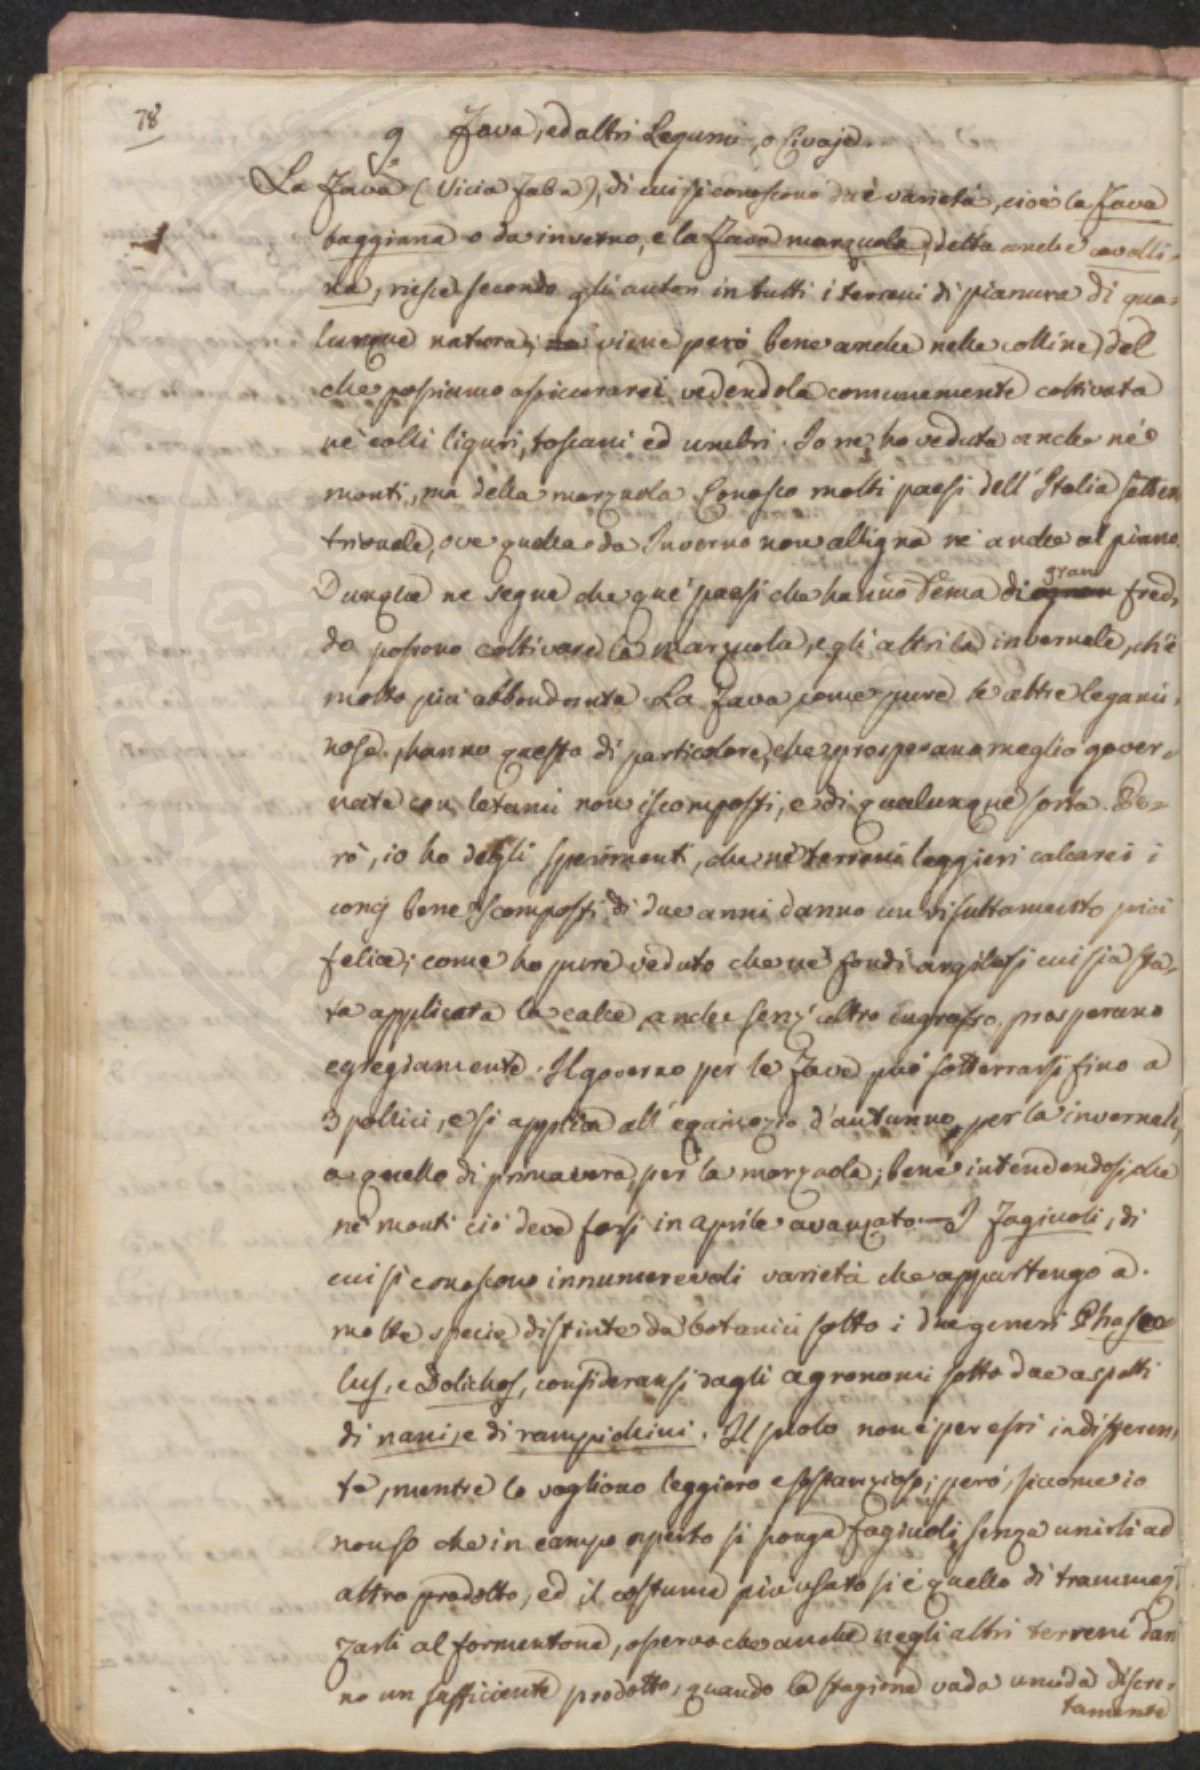 78
9 Fava, ed altri Legumi, o Civaje.
La Fava (Vicia Faba), di cui si conoscono due varietà, cioè la Fava
baggiana o da inverno, e la Fava marzuola, detta anche cavalli-
na, riesce secondo gli autori in tutti i terreni di pianura di qua-
lunque natura; viene però bene anche nelle colline, del
che possiamo assicurarci vedendola comunemente coltivata
ne' colli liguri, toscani ed umbri. Io ne ho veduta anche ne'
monti, ma della marzuola. Conosco molti paesi dell'Italia setten
trionale, ove quella da Inverno non alligna nè anche al piano.
Dunque ne segue che que' paesi che hanno tema di gran fred-
do possono coltivare la marzuola, e gli altri la invernale, ch'è
molto più abbondante. La Fava, come pure le altre legumi-
nose, hanno questo di particolare, che prosperano meglio gover-
nate con letami non iscomposti, e di qualunque sorta. Pe-
rò, io ho degli sperimenti, che ne' terreni leggieri calcarei i
concj bene scomposti di due anni danno un risultamento più
felice; come ho pure veduto che ne' fondi argilosi cui sia sta-
ta applicata la calce, anche senz'altro ingrasso, prosperano
egregiamente. Il governo per le Fave può sotterrarsi fino a
3 pollici, e si applica all'equinozio d'autunno per la invernale,
a quello di primavera per la marzuola; bene intendendosi, che
ne' monti ciò deve farsi in aprile avanzato. — I Fagiuoli, di
cui si conoscono innumerevoli varietà che appartengo a
molte specie distinte da' botanici sotto i due generi Phaseo-
lus, e Dolichos, consideransi dagli agronomi sotto due aspetti
di nani, e di rampichini. Il suolo non è per essi indifferen-
te, mentre lo vogliono leggiero e sostanzioso; però, siccome io
non so che in campo aperto si ponga fagiuoli senza unirli ad
altro prodotto, ed il costume più usato si è quello di trammez-
zarli al formentone, osservo che anche negli altri terreni dan
no un sufficiente prodotto, quando la stagione vada umida discre-
tamente